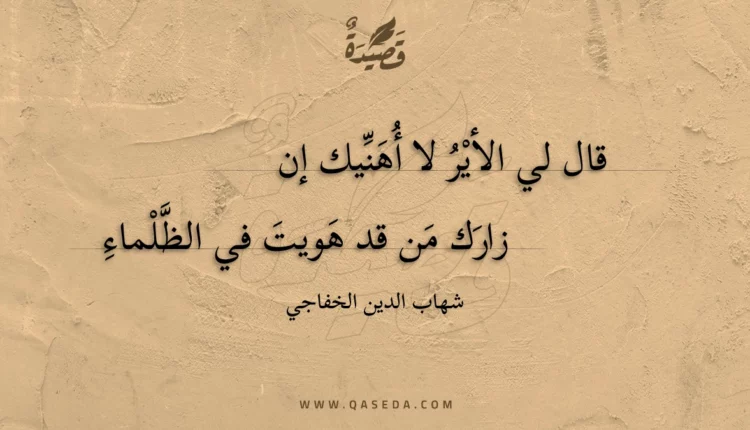 قَصِيدَةٌ
قال لي الأيْرُ لا أُهَنِّيك إن
زارَك مَن قد هَويتَ في الظَّلْماءِ
شهاب الدين الخفاجي
WWW.QASEDA.COM